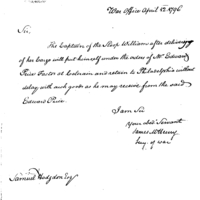 War Office April 12th 1796
Sir,
The Captain of the Sloop Williams after delivery
of her Cargo will put himself under the orders of Mr Edward
Price Factor at Colerain and return to Philadelphia without
delay with such goods as he may receive from the said
Edward Price
I am Sir
Your obed Servant
James McHenry
Secy of War
Samuel Hodgdon Esqr